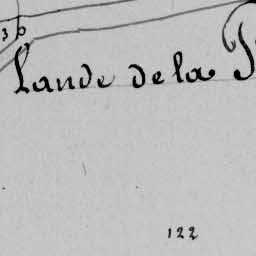 Lande de la
122